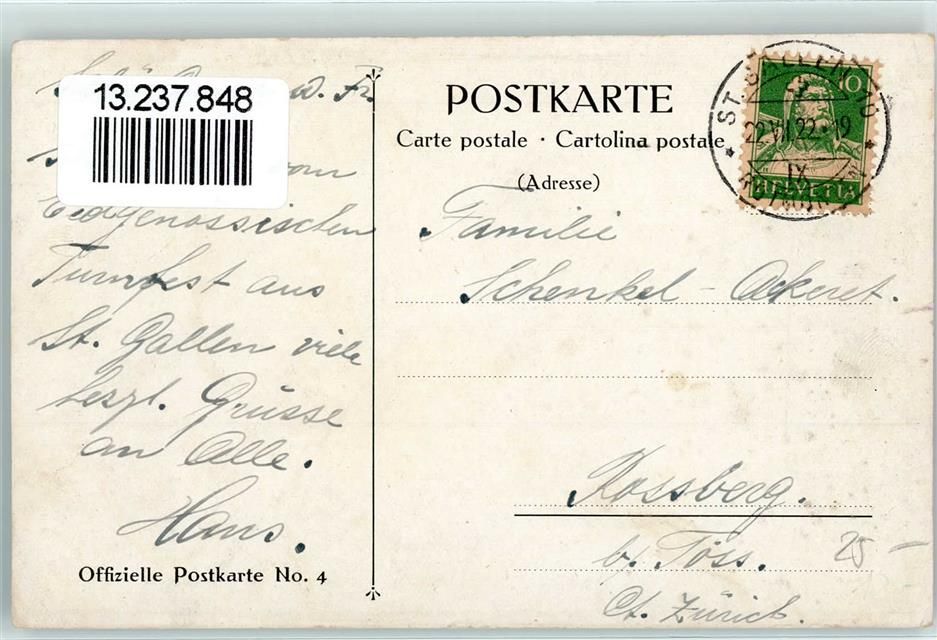 13.237.848
w. Fr.
vom
Eidgenössischen
Turnfest aus
St. Gallen viele
herzl. Grüsse
an Alle.
Hans.
Offizielle Postkarte No. 4
POSTKARTE
Carte postale · Cartolina postale
(Adresse)
Familie
Schenkel - Ackeret.
Rossberg.
b/ Töss.
Ct. Zürich.
25 -
10
HELVETIA
ST. GALLEN
22.VII.22.-19
IX